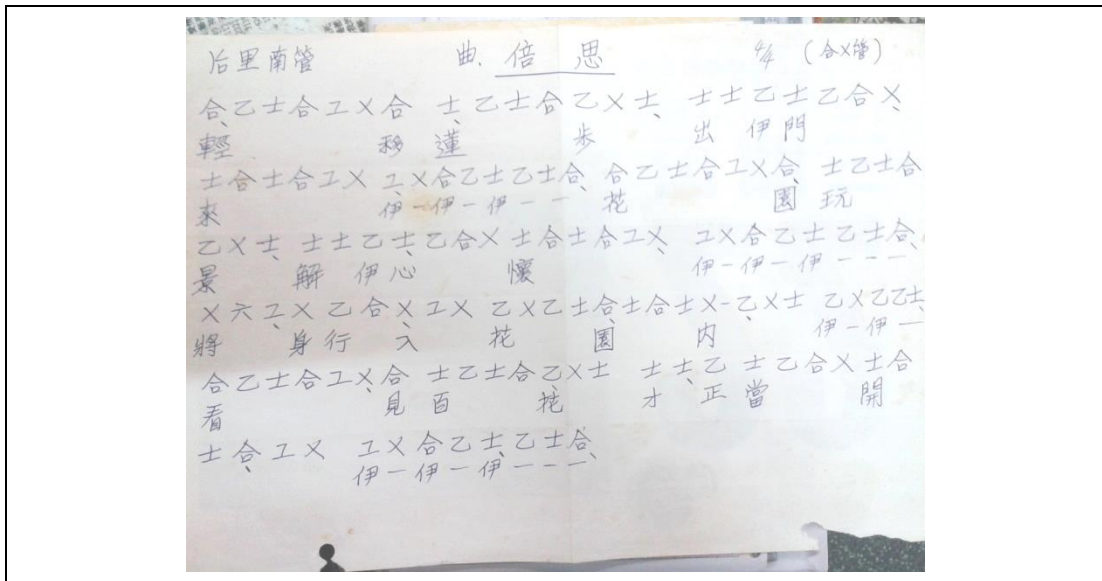 后里南管 曲. 倍思 4/4 (合乂管)
合、乙士合工乂合 士、乙士合乙乂士、 士士乙士乙合乂、
輕 移蓮 步 出伊門
士合士合工乂 工、乂合乙士乙士合、 合乙士合工乂合、 士乙士合
來 伊一伊一伊一一 花 園玩
乙乂士、 士士乙士、乙合乂士合士合工乂、 工乂合乙士乙士合、
景 解伊心 懷 伊一伊一伊一一一
乂六工、乂乙合乂、工乂 乙乂乙士合、士合士乂-乙、乂士 乙乂乙乙士、
將 身行入 花 園 内 伊一伊一
合乙士合工乂、合 士乙士合乙、乂士 士士、乙士乙合乂士合
看 見百 花 才正當 開
士合、工乂 工乂合乙士、乙士合、
伊一伊一伊一一一